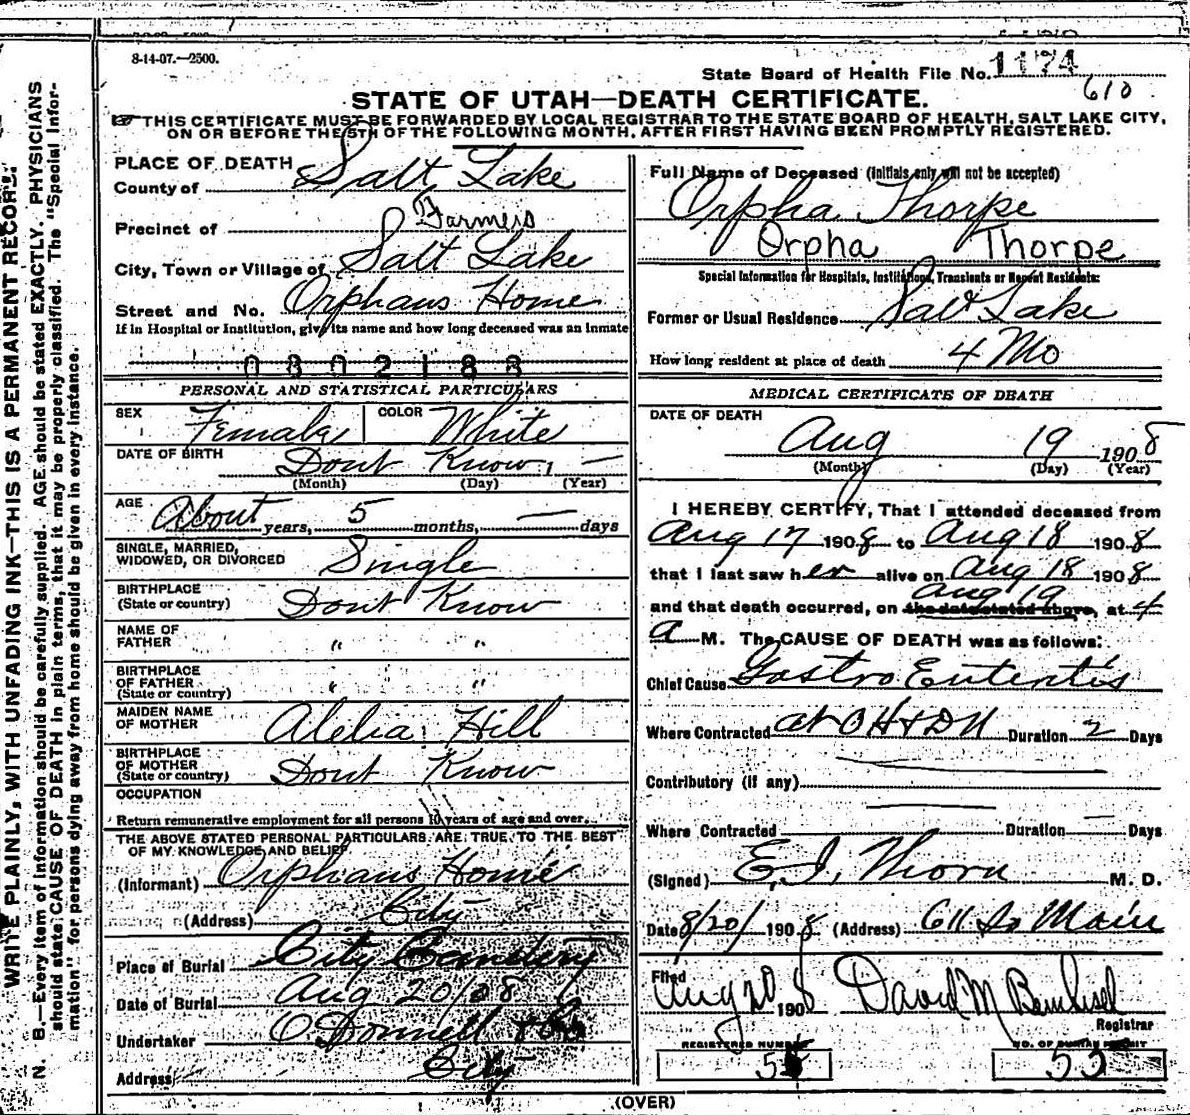 8-14-07.—2500.
State Board of Health File No. 1174
610
STATE OF UTAH—DEATH CERTIFICATE.
☞ THIS CERTIFICATE MUST BE FORWARDED BY LOCAL REGISTRAR TO THE STATE BOARD OF HEALTH, SALT LAKE CITY,
ON OR BEFORE THE 5TH OF THE FOLLOWING MONTH, AFTER FIRST HAVING BEEN PROMPTLY REGISTERED.
PLACE OF DEATH
County of Salt Lake
Precinct of Farmers
City, Town or Village of Salt Lake
Street and No. Orphans Home
If in Hospital or Institution, give its name and how long deceased was an inmate
0302188
PERSONAL AND STATISTICAL PARTICULARS
SEX Female COLOR White
DATE OF BIRTH Dont Know, —
(Month) (Day) (Year)
AGE About years, 5 months, — days
SINGLE, MARRIED,
WIDOWED, OR DIVORCED Single
BIRTHPLACE
(State or country) Dont Know
NAME OF
FATHER " "
BIRTHPLACE
OF FATHER
(State or country) " "
MAIDEN NAME
OF MOTHER Alelia Hill
BIRTHPLACE
OF MOTHER
(State or country) Dont Know
OCCUPATION
Return remunerative employment for all persons 10 years of age and over.
THE ABOVE STATED PERSONAL PARTICULARS ARE TRUE TO THE BEST
OF MY KNOWLEDGE AND BELIEF
(Informant) Orphans Home
(Address) City
Place of Burial City Cemetery
Date of Burial Aug 20/08
Undertaker O'Donnell & Co
Address City
Full Name of Deceased (Initials only will not be accepted)
Orpha Thorpe
Orpha Thorpe
Special Information for Hospitals, Institutions, Transients or Recent Residents:
Former or Usual Residence Salt Lake
How long resident at place of death 4 Mo
MEDICAL CERTIFICATE OF DEATH
DATE OF DEATH
Aug 19 1908
(Month) (Day) (Year)
I HEREBY CERTIFY, That I attended deceased from
Aug 17 1908 to Aug 18 1908
that I last saw her alive on Aug 18 1908
Aug 19
and that death occurred, on the date stated above, at 4
a M. The CAUSE OF DEATH was as follows:
Chief Cause Gastro Enteritis
Where Contracted at OH & DN Duration 2 Days
Contributory (if any)
Where Contracted Duration — Days
(Signed) E. I. Thorn M. D.
Date 8/20/ 1908 (Address) 611 So Main
Filed
Aug 20 1908 David M Bernhisel
Registrar
REGISTERED NUMBER NO. OF BURIAL PERMIT
55 55
(OVER)
WRITE PLAINLY, WITH UNFADING INK—THIS IS A PERMANENT RECORD.
N. B.—Every item of information should be carefully supplied. AGE should be stated EXACTLY. PHYSICIANS
should state CAUSE OF DEATH in plain terms, that it may be properly classified. The "Special Infor-
mation" for persons dying away from home should be given in every instance.